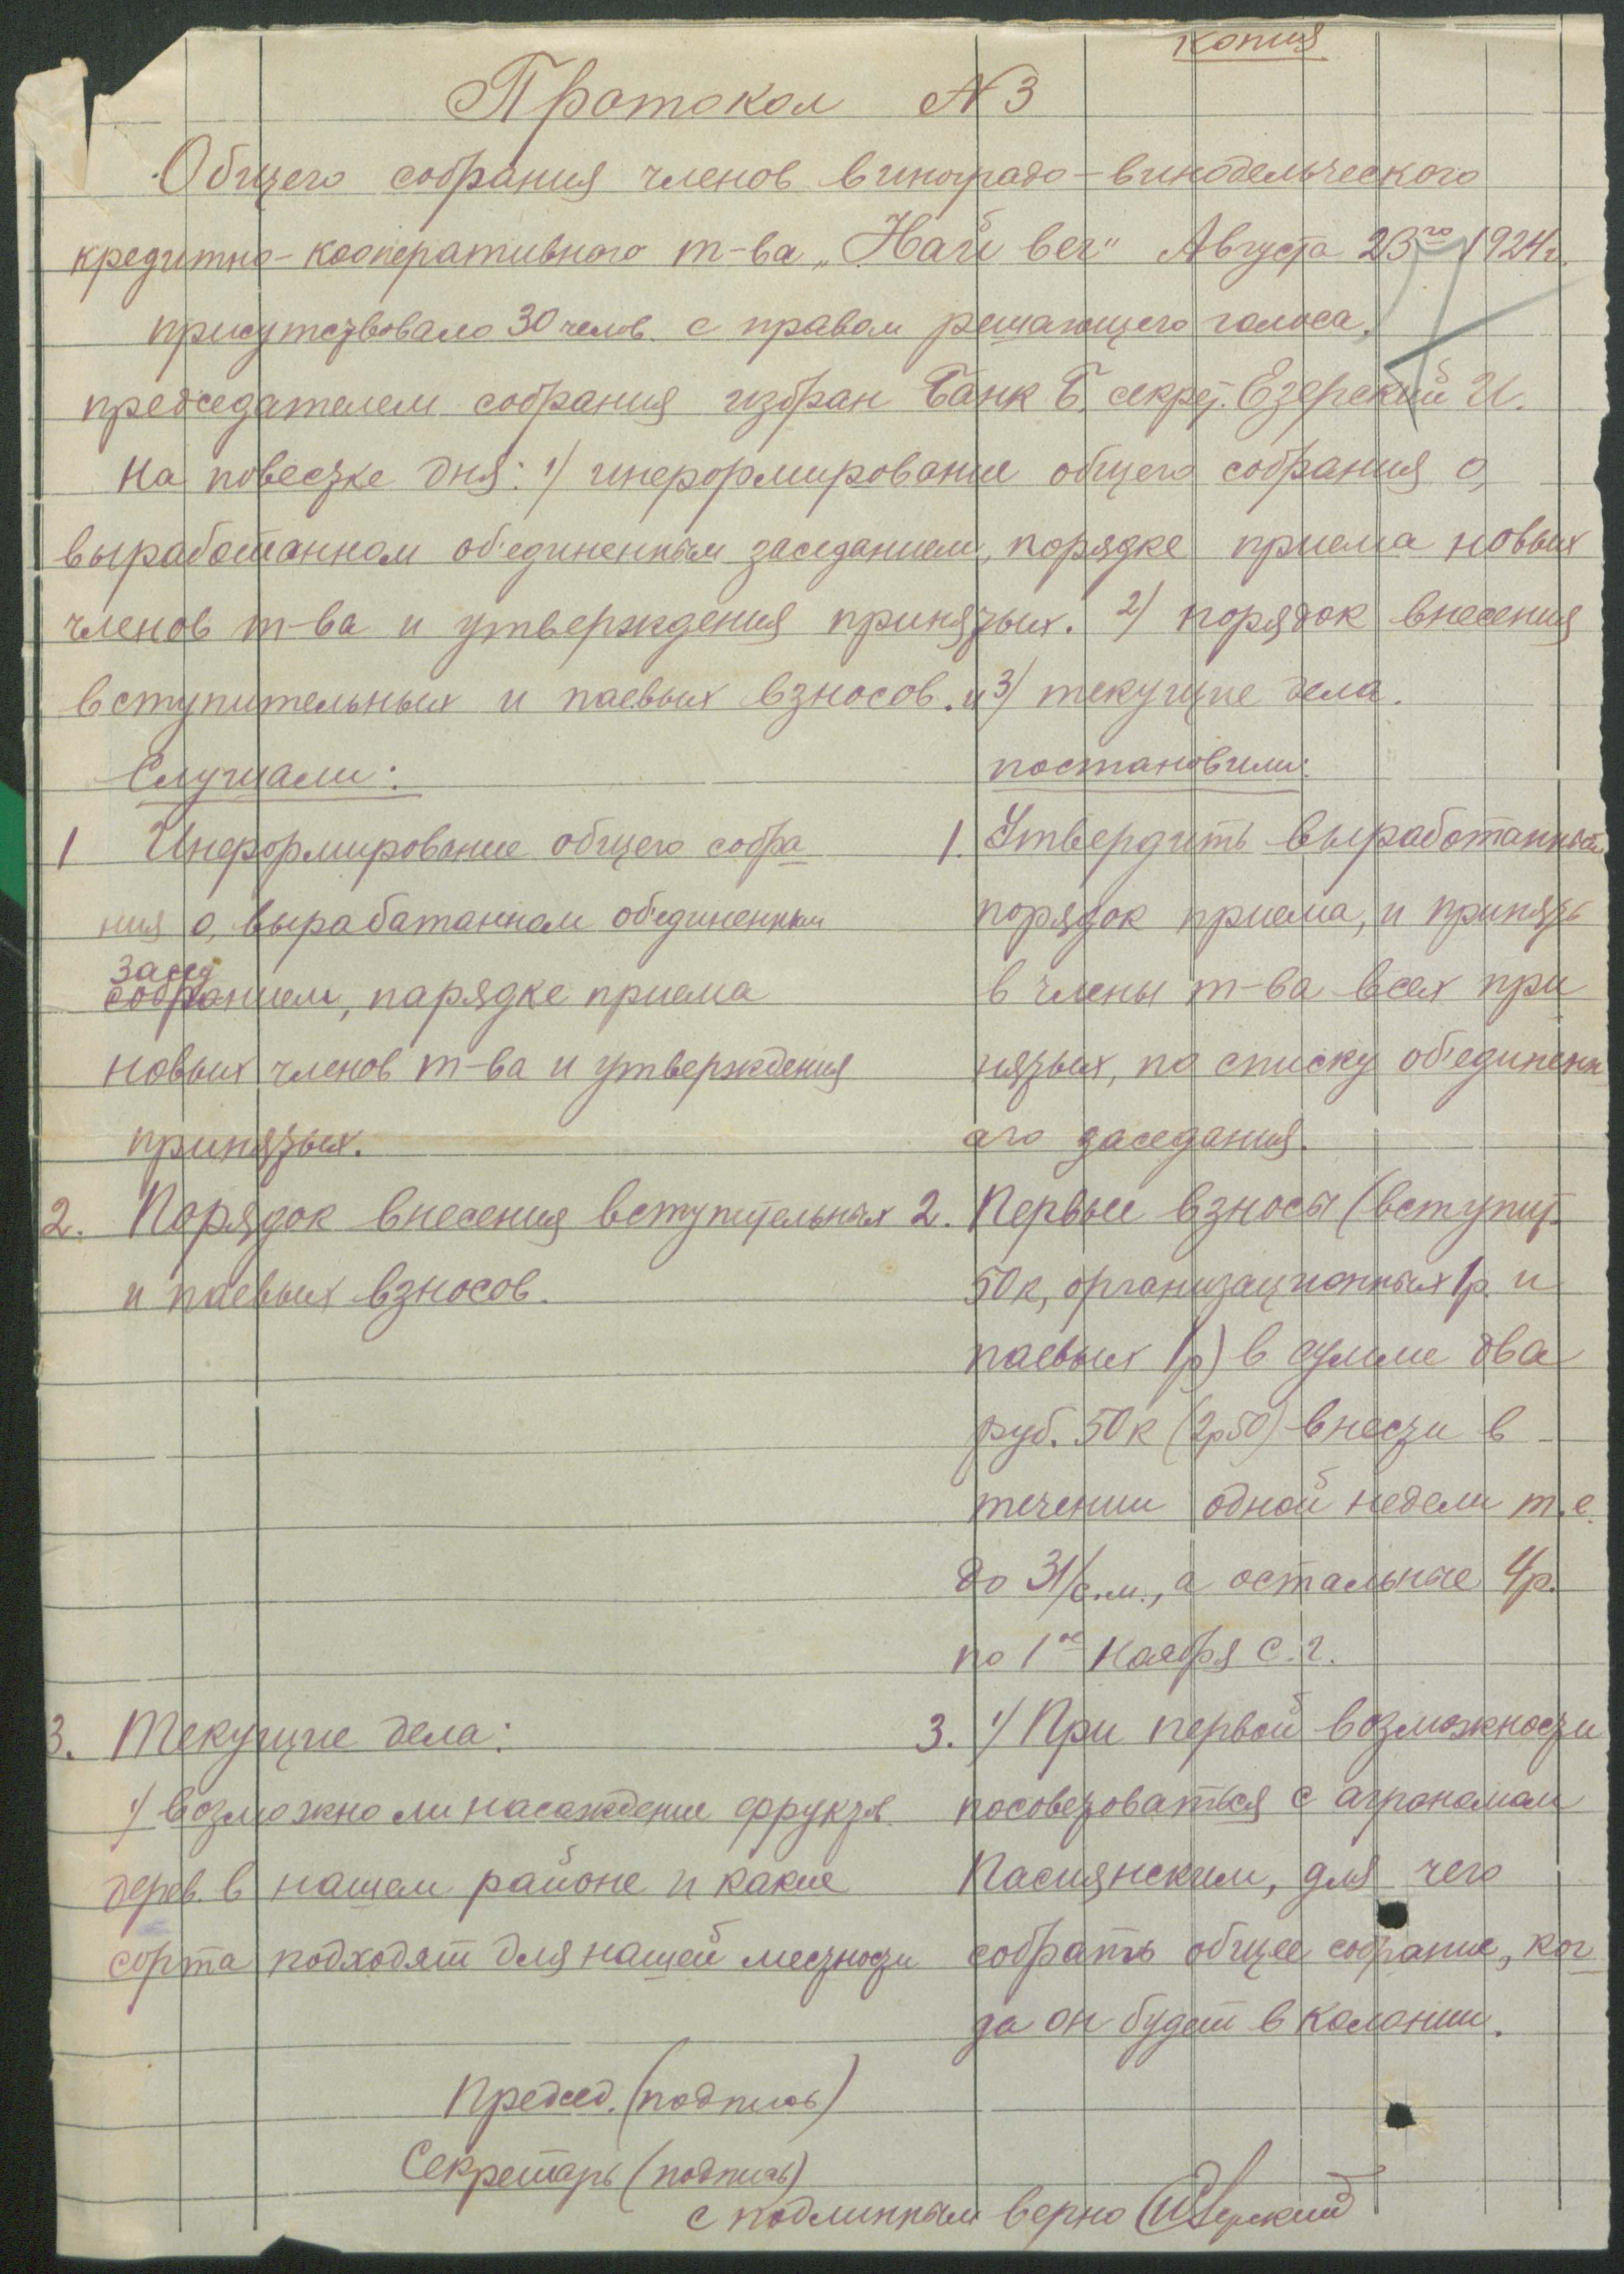 копия
Протокол N 3
Общего собрания членов виноградо-винодельческого
кредитно-кооперативного т-ва „Най вег" Августа 23го 1924 г.
присутствовало 30 челов. с правом решающего голоса.
председателем собрания избран Банк Б. секрет. Езерский И.
На повестке дня: 1) информирование общего собрания о,
выработанном об'единенным заседанием, порядке приема новых
членов т-ва и утверждения принятых. 2) порядок внесения
вступительных и паевых взносов. и 3) текущие дела.
Слушали:
1 Информирование общего собра
ния о, вырабатанном об'единенным
засед
собранием, парядке приема
новых членов т-ва и утверждения
принятых.
2. Порядок внесения вступительных
и паевых взносов.
3. Текущие дела:
1) возможно ли насаждение фруктов.
дерев. в нашем районе и какие
сорта подходят для нашей местности
постановили:
1. Утвердить выработанный
порядок приема, и принять
в члены т-ва всех при
нятых, по списку об'единенн
ого заседания.
2. Первые взносы (вступит.
50к, организационных 1р. и
паевых 1р) в сумме два
руб. 50к (2р50) внести в
течении одной недели т.е.
до 31/с.м., а остальные 4р.
по 1ое Ноября с.г.
3. 1) При первой возможности
посоветоваться с агрономом
для чего
собрать общее собрание, ког
да он будет в колонии.
Председ. (подпись)
Секретарь (подпись)
с подлинным верно